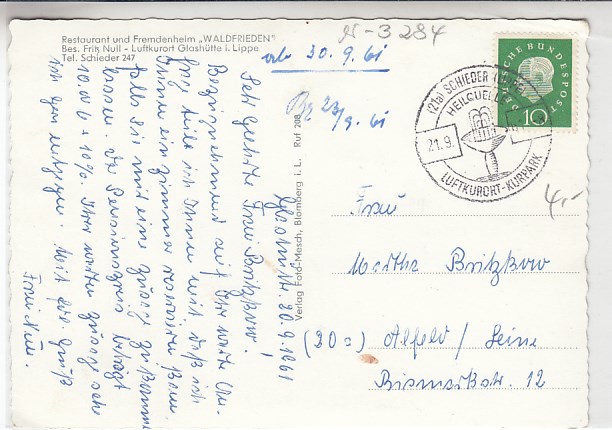 Restaurant und Fremdenheim „WALDFRIEDEN"
Bes. Fritz Null - Luftkurort Glashütte i. Lippe
Tel. Schieder 247
N-3284
30.9.61
23/9.61
(21a) SCHIEDER (LIPPE)
HEILQUELLE
21.9.
LUFTKURORT-KURPARK
DEUTSCHE BUNDESPOST
10
4,-
Verlag Foto-Mesch, Blomberg i. L. Ruf 208
Glashütte. 20.9.1961
Sehr geehrte Frau Britzkow!
Bezugnehmend auf Ihre werte An-
frage teile ich Ihnen mit, daß ich
Ihnen ein Zimmer reservieren kann
falls Sie mit eine
lassen. Der Pensionspreis beträgt
10.00 + 10%. Ihrer werten Zusage sehe
ich gern entgegen. Mit frdl. Gruß
Frau Null.
Frau
Martha Britzkow
(20a) Alfeld / Leine
Bismarkstr. 12